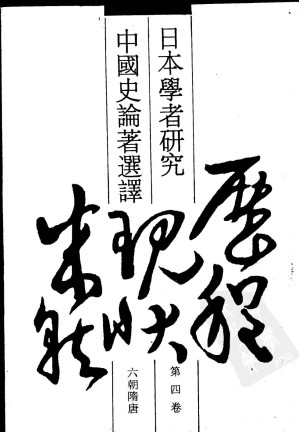 日本學者研究
中國史論著選譯
歷程
現狀
第四卷
六朝隋唐